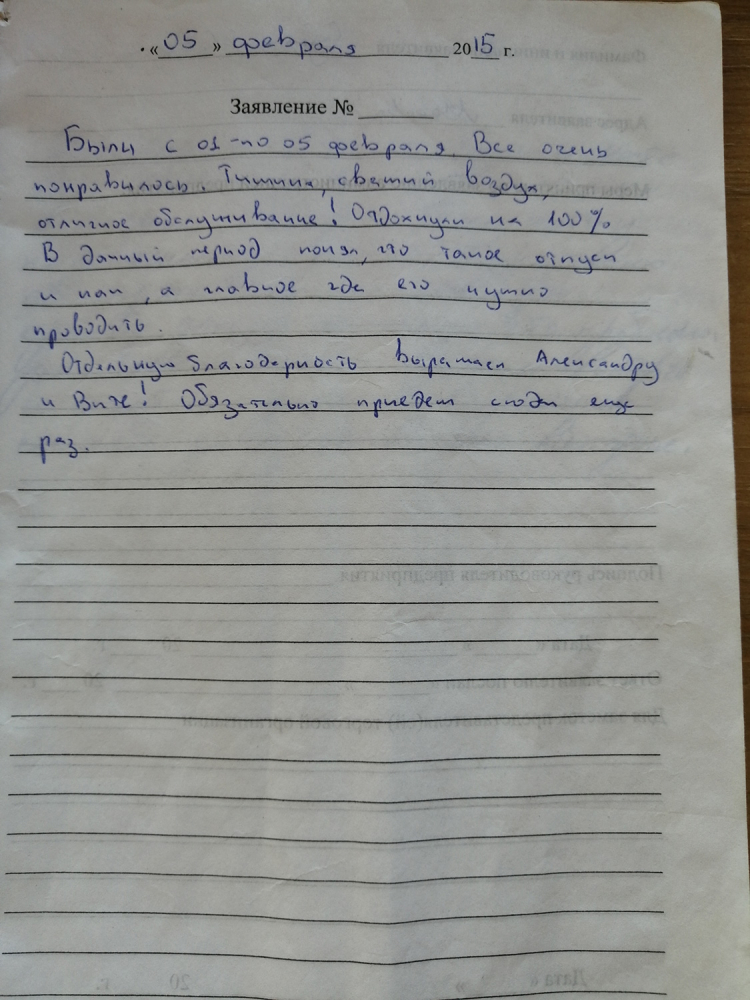 «05» февраля 2015 г.
Заявление №
Были с 01 - по 05 февраля. Все очень
понравилось. Тишина, свежий воздух,
отличное обслуживание! Отдохнули на 100%
В данный период понял, что такое отпуск
и как, а главное где его нужно
проводить.
Отдельную благодарность выражаем Александру
и Вите! Обязательно приедем сюда еще
раз.